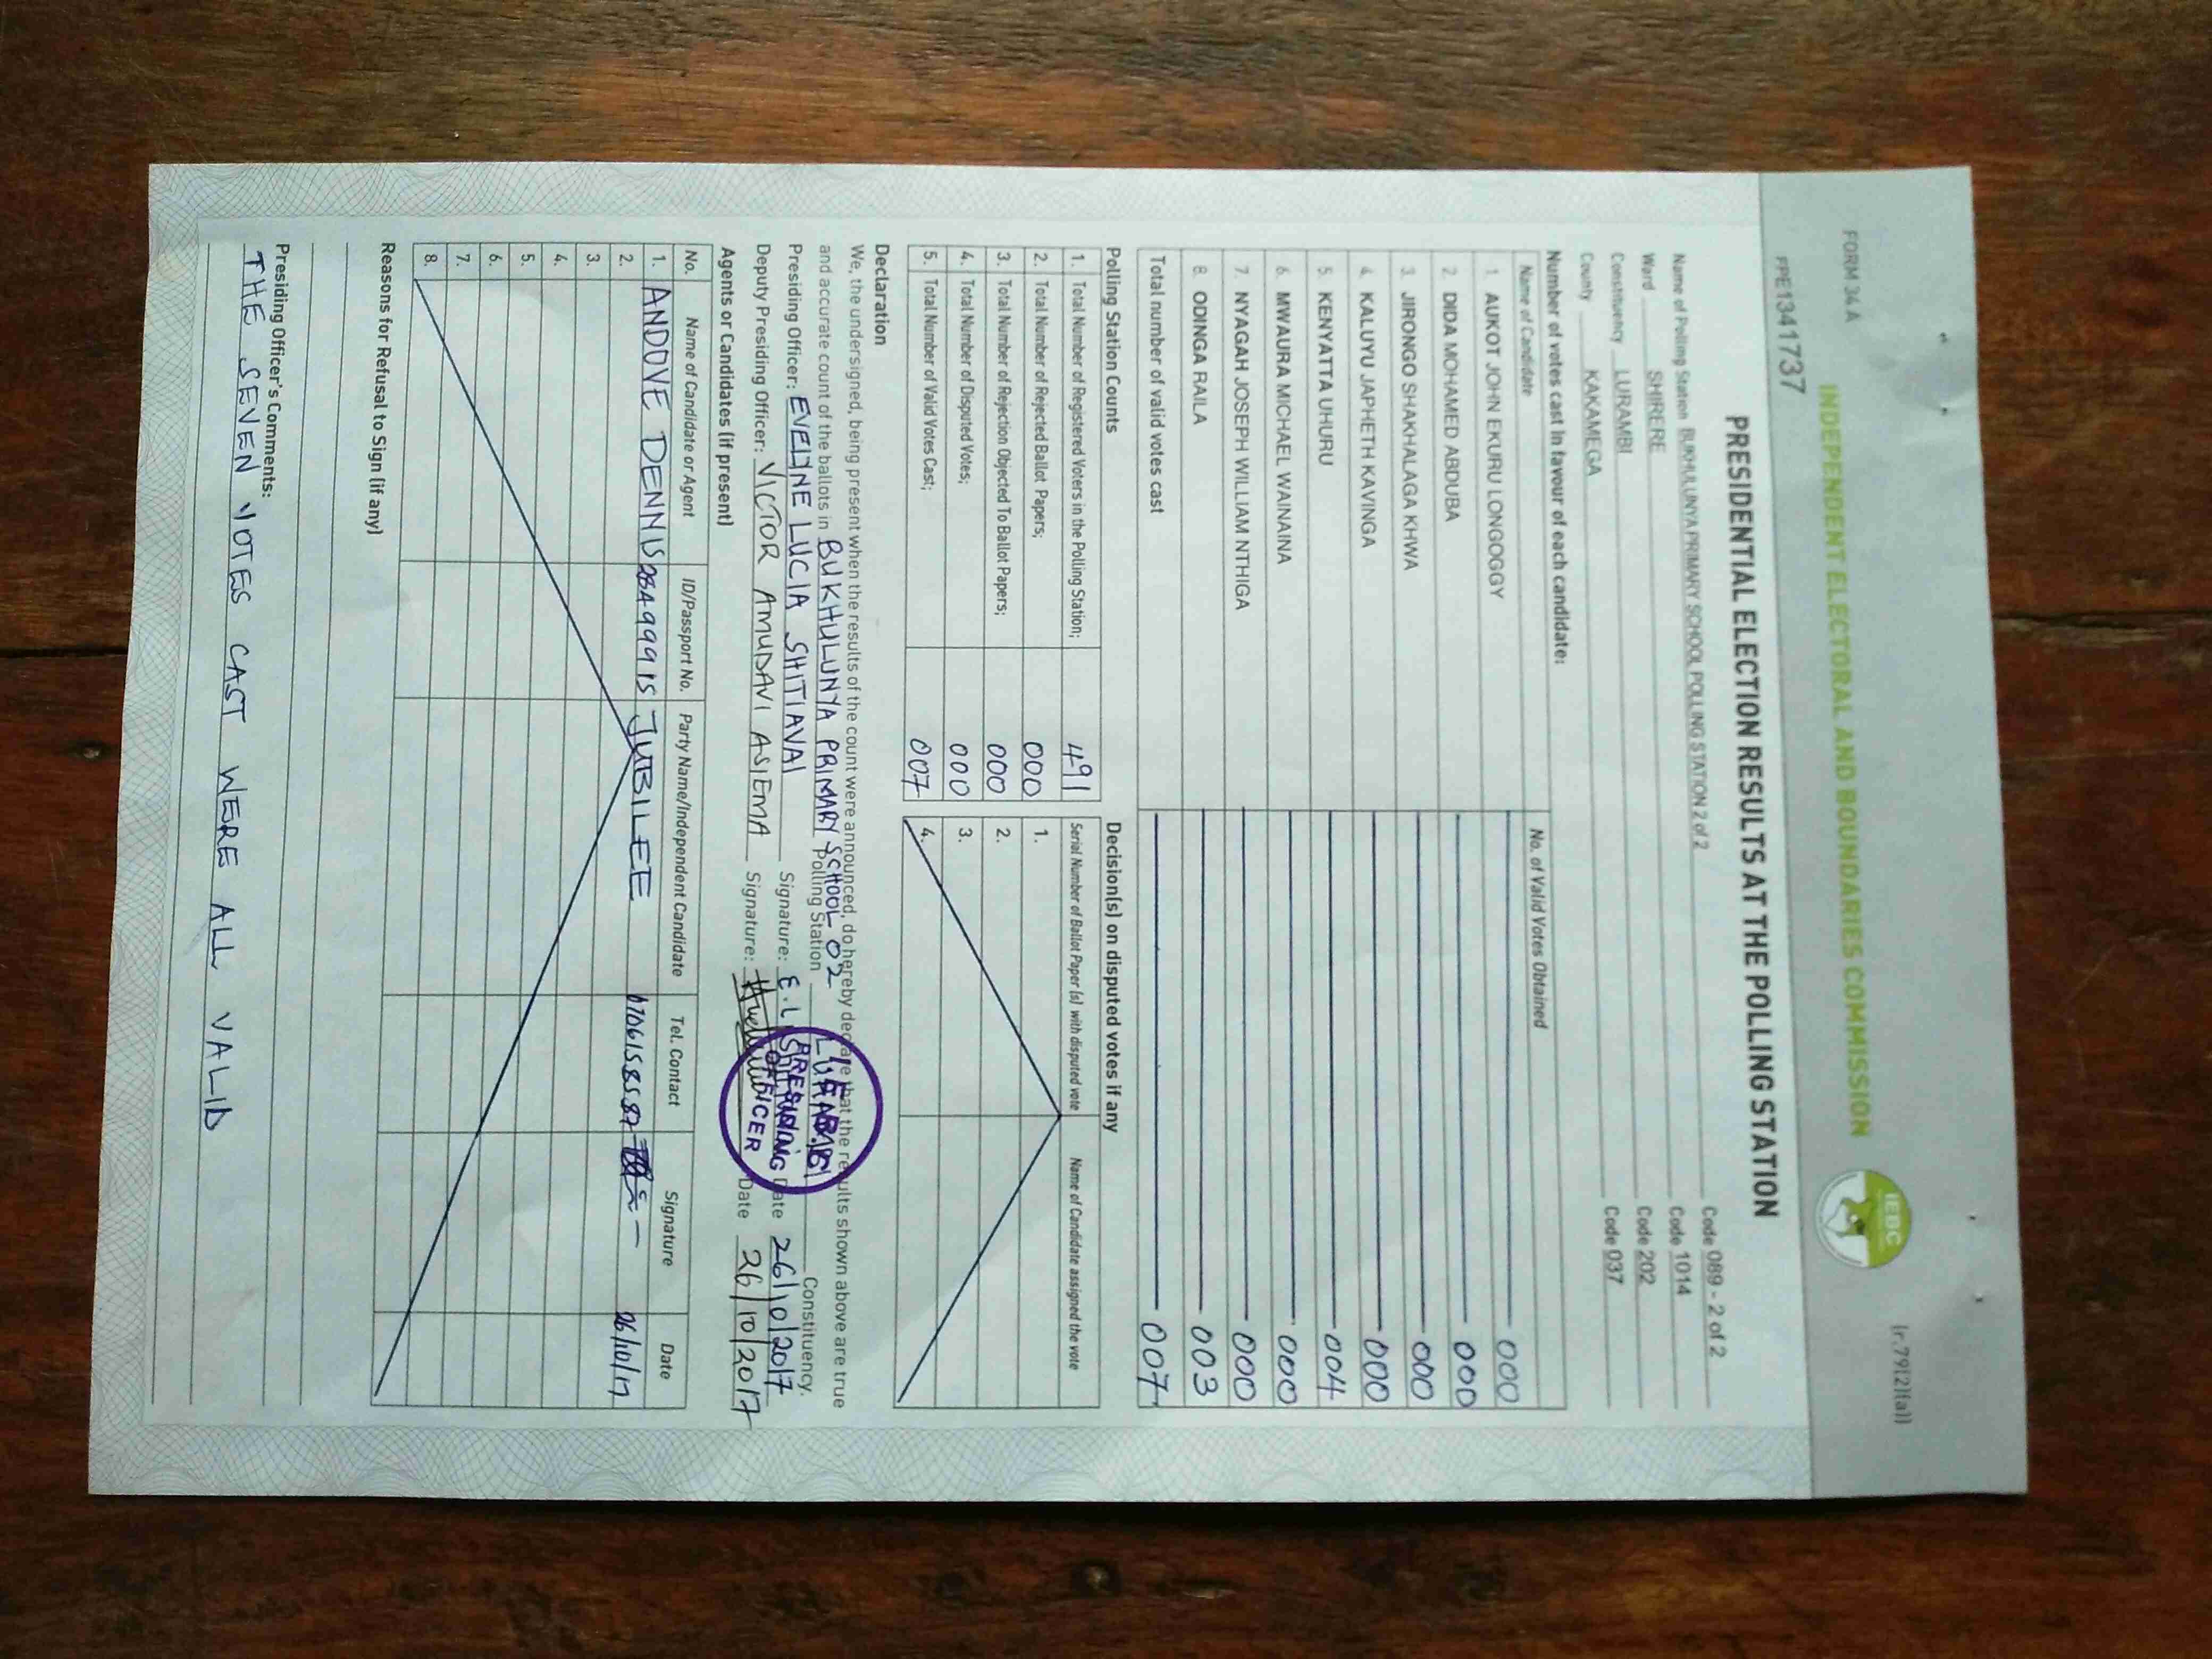 FORM 34A
(r.79(2)(a))
INDEPENDENT ELECTORAL AND BOUNDARIES COMMISSION
IEBC
FPE1341737
PRESIDENTIAL ELECTION RESULTS AT THE POLLING STATION
Name of Polling Station BUKHULUNYA PRIMARY SCHOOL POLLING STATION 2 of 2 Code 089 - 2 of 2
Ward SHIRERE Code 1014
Constituency LURAMBI Code 202
County KAKAMEGA Code 037
Number of votes cast in favour of each candidate:
Name of Candidate No. of Valid Votes Obtained
1. AUKOT JOHN EKURU LONGOGGY 000
2. DIDA MOHAMED ABDUBA 000
3. JIRONGO SHAKHALAGA KHWA 000
4. KALUYU JAPHETH KAVINGA 000
5. KENYATTA UHURU 004
6. MWAURA MICHAEL WAINAINA 000
7. NYAGAH JOSEPH WILLIAM NTHIGA 000
8. ODINGA RAILA 003
Total number of valid votes cast 007
Polling Station Counts Decision(s) on disputed votes if any
1. Total Number of Registered Voters in the Polling Station; 491 Serial Number of Ballot Paper (s) with disputed vote Name of Candidate assigned the vote
2. Total Number of Rejected Ballot Papers; 000 1.
3. Total Number of Rejection Objected To Ballot Papers; 000 2.
4. Total Number of Disputed Votes; 000 3.
5. Total Number of Valid Votes Cast; 007 4.
Declaration
We, the undersigned, being present when the results of the count were announced, do hereby declare that the results shown above are true
and accurate count of the ballots in BUKHULUNYA PRIMARY SCHOOL 02 Polling Station LURAMBI Constituency.
Presiding Officer: EVELINE LUCIA SHITIAVAI Signature: E.L Date 26/10/2017
Deputy Presiding Officer: VICTOR AMUDAVI ASIEMA Signature: Date 26/10/2017
PRESIDING
OFFICER
Agents or Candidates (if present)
No. Name of Candidate or Agent ID/Passport No. Party Name/Independent Candidate Tel. Contact Signature Date
1. ANDOVE DENNIS 28499915 JUBILEE 0706158587 26/10/17
2.
3.
4.
5.
6.
7.
8.
Reasons for Refusal to Sign (if any)
Presiding Officer's Comments:
THE SEVEN VOTES CAST WERE ALL VALID